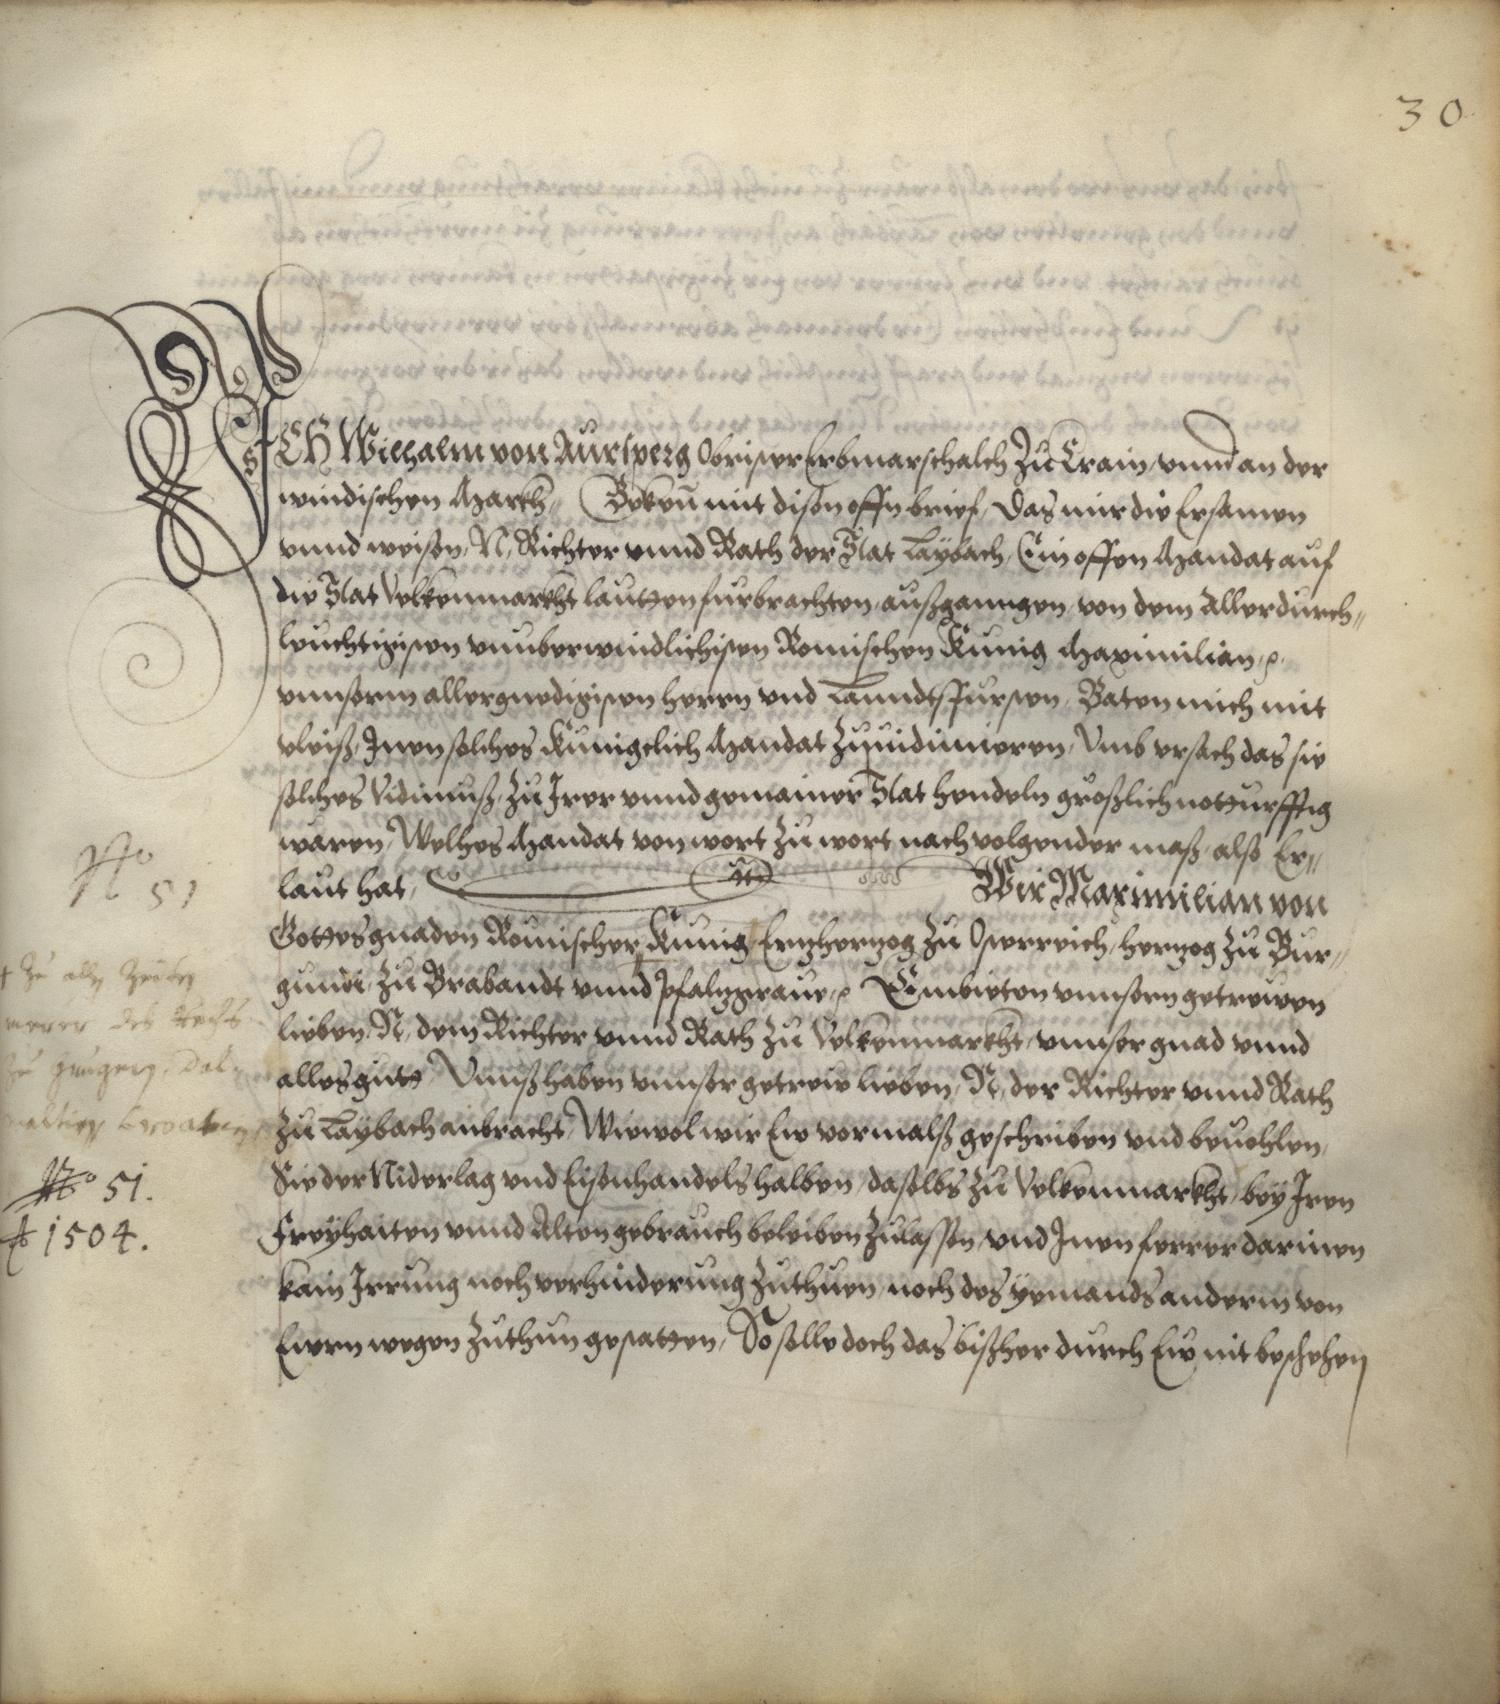 30
ICH Wilhalm von Aursperg Obrister Erbmarschalch Zu Crain, vnnd an der
windischen March, Bekenn mit disen offn brief, Das mir die Ersamen
vnnd weisen, N, Richter vnnd Rath der Stat Laybach, Ein offen Mandat auf
die Stat Volkenmarkht lautten furbrachten, außganngen, von dem Allerdurch„
leuchtigisten vnuberwindlichisten Romischen Kunig Maximilian, ꝛ.
vnnserm allergnedigisten herrn vnd Lanndtsfursten, Baten mich mit
vleiß, Inen solches Kunigclich Mandat Zuuidimieren, Vmb vrsach das sie
solches Vidimuß, Zu Irer vnnd gemainer Stat hendeln größlich notturfftig
waren, Welhes Mandat von wort zu wort nachvolgender maß, alß Er„
laut hat, Wir Maximilian von
Gottes gnaden Romischer Kunig, Ertzhertzog zu Osterreich, hertzog zu Bur„
gundi, Zu Brabandt vnnd Pfaltzgraue, ꝛ Embieten vnnsern getrewen
lieben, N, dem Richter vnnd Rath zu Volkenmarkht, vnnser gnad vnnd
alles gutt, Vnnß haben vnnser getrew lieben, N, der Richter vnnd Rath
zu Laybach anbracht, Wiewol wir Ew vormalß geschriben vnd beuohlen,
Sie der Niderlag vnd Eisenhandels halben, daselbs zu Volkenmarkht, bey Iren
Freyhaiten vnnd Alten gebrauch beleiben Zulassen, vnd Inen ferrer darinnen
kain Irrung noch verhinderung Zuthuen, noch des yemands anderm von
Ewrn wegen Zuthun gestatten, So solle doch das bißher durch Ew nit beschehen
No 51
+ Zu alln Zeiten
merer des Reichs
Zu Hungern, Dal„
matien Croatien
No 51.
Ao 1504.